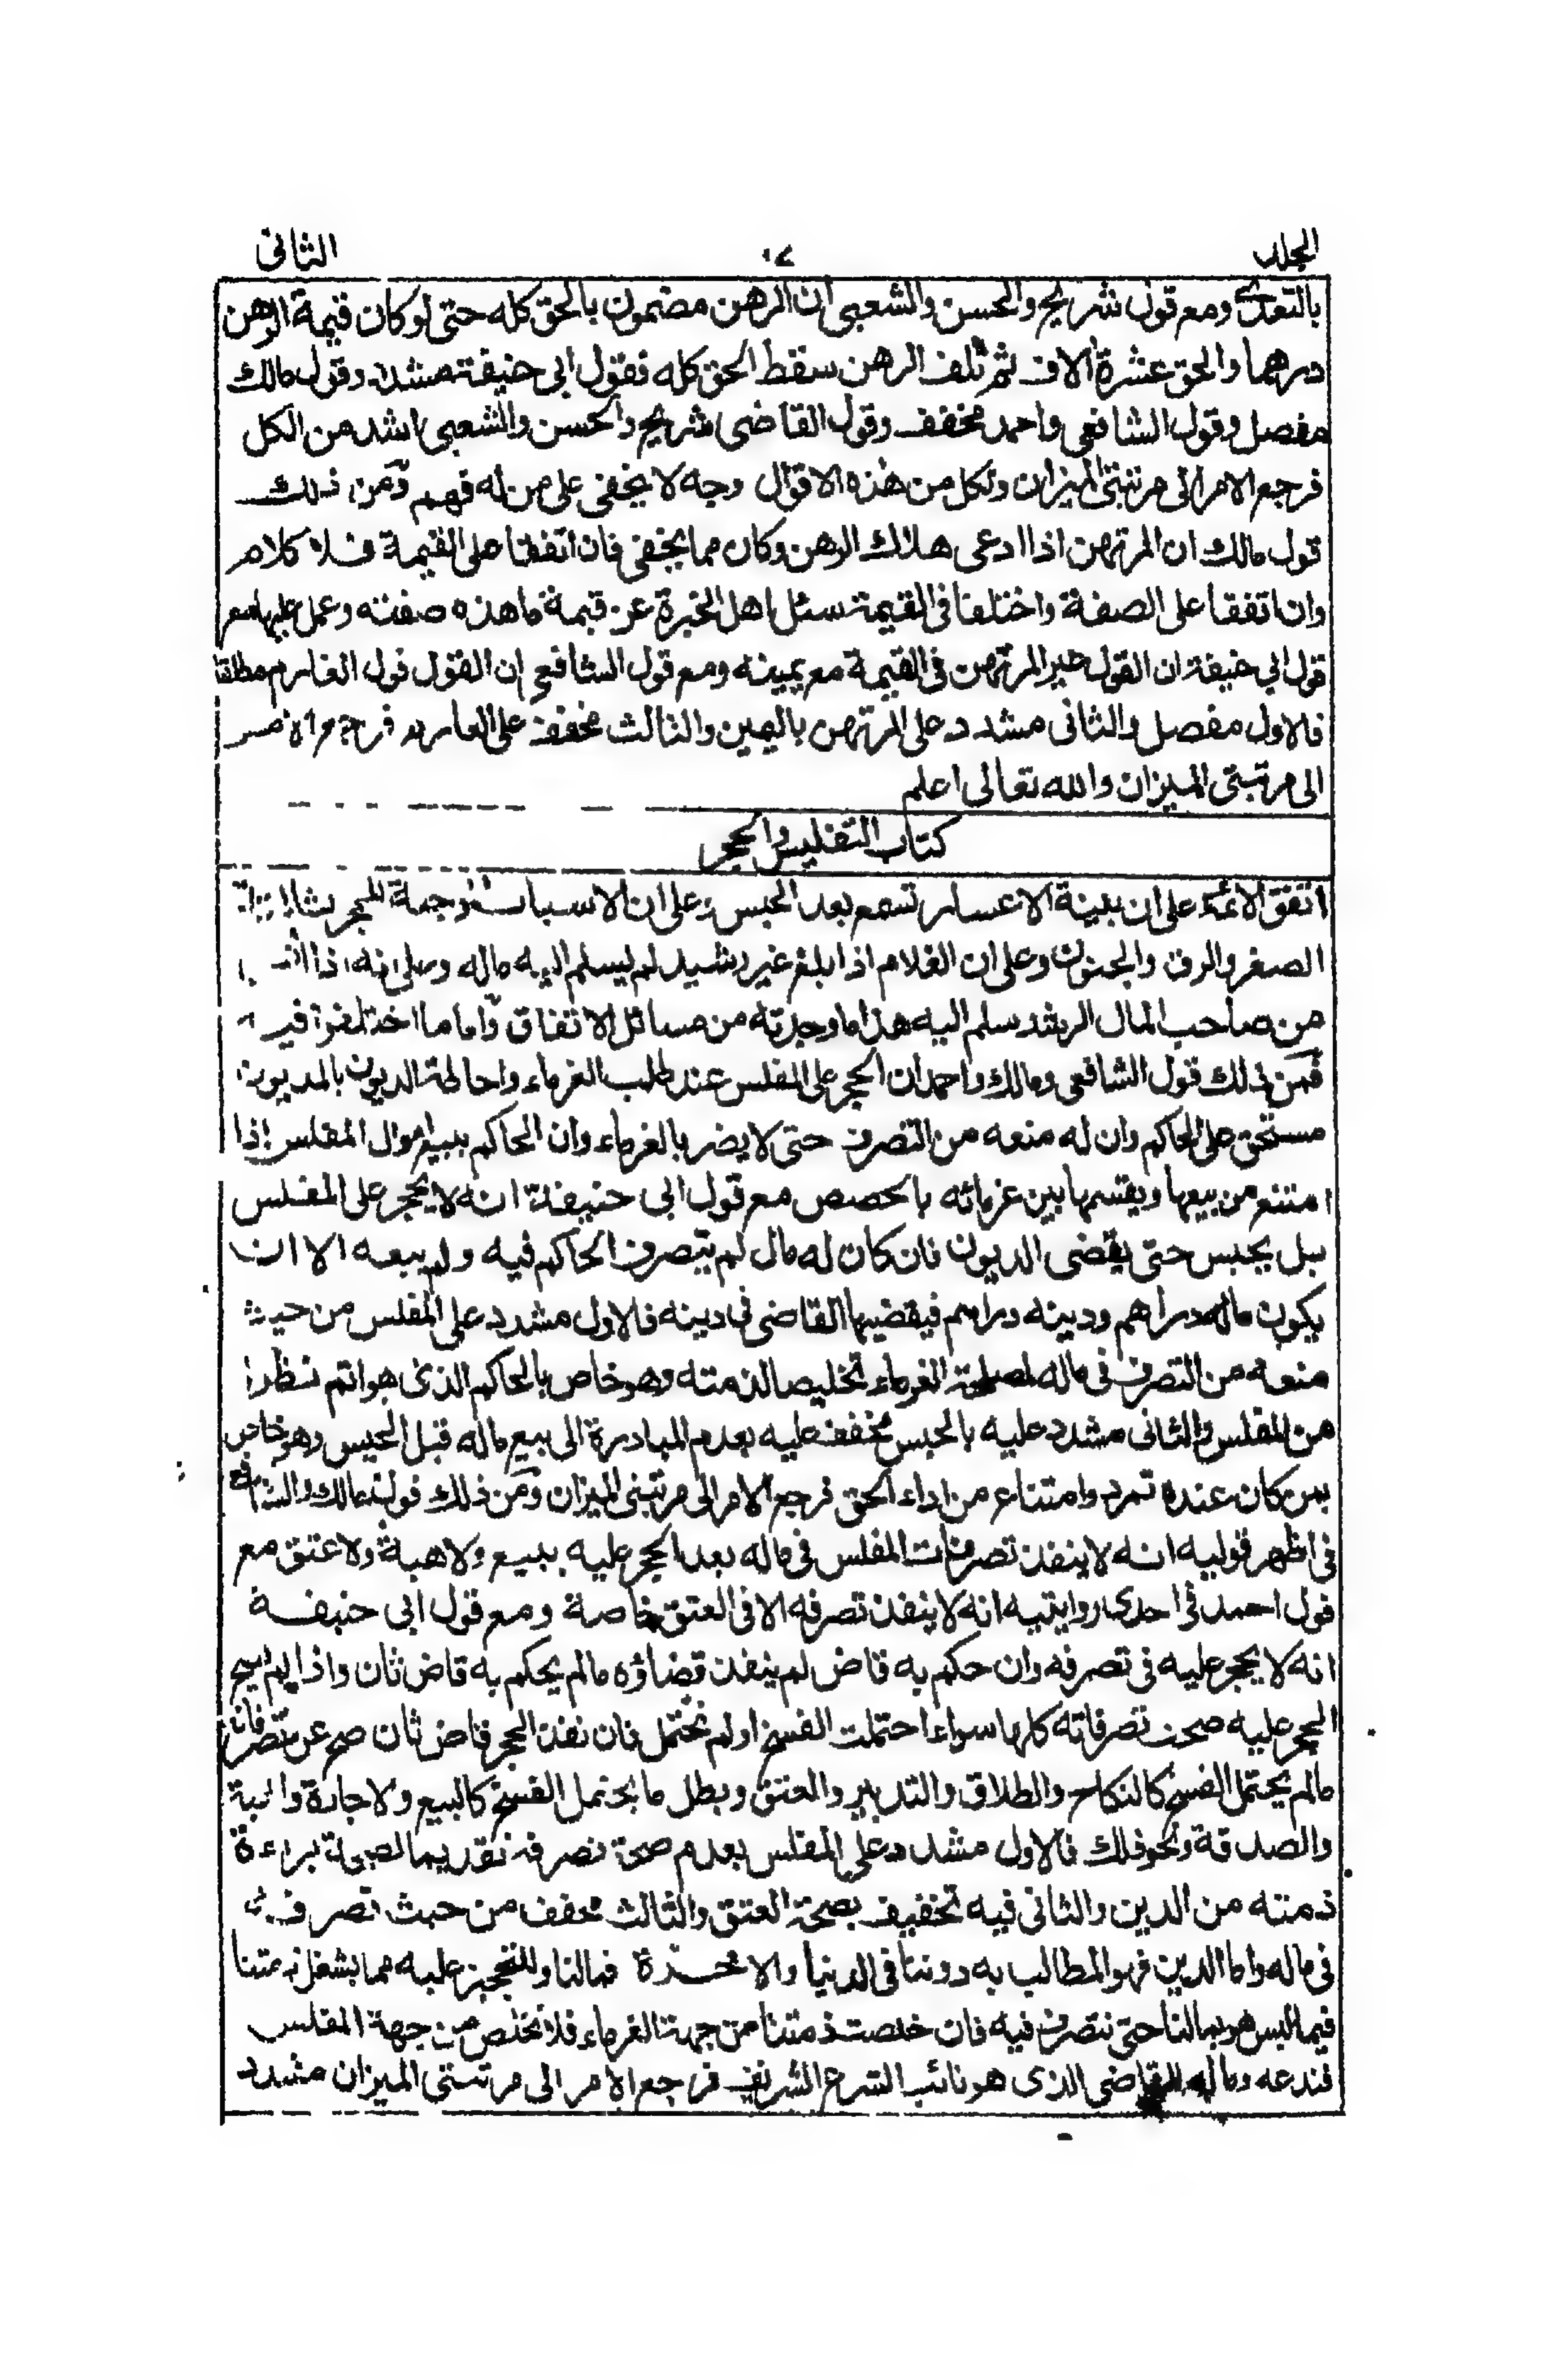 المجلد
الثانى
بالتعدى ومع قول شريح والحسن والشعبى ان الرهن مضمون بالحق كله حتى لو كان قيمة الرهن
درهما والحق عشرة الاف ثم تلف الرهن سقط الحق كله فقول ابى حنيفة مشدد وقول مالك
مفصل وقول الشافعى واحمد مخفف وقول القاضى شريح والحسن والشعبى اشد من الكل
فرجع الامر الى مرتبتى الميزان ولكل من هذه الاقوال وجه لا يخفى على من له فهم ومن ذلك
قول مالك ان المرتهن اذا ادعى هلاك الرهن وكان مما يخفى فان اتفقا على القيمة فلا كلام
وان اتفقا على الصفة واختلفا فى القيمة سئل اهل الخبرة عن قيمة ما هذه صفته وعمل عليها مع
قول ابي حنيفة ان القول المرتهن فى القيمة مع يمينه ومع قول الشافعى ان القول قول الغارم مطلقا
فالاول مفصل والثانى مشدد على المرتهن باليمين والثالث مخفف على الغارم فرجع الامر
الى مرتبتى الميزان والله تعالى اعلم
كتاب التفليس والحجر
اتفق الائمة على ان بينة الاعسار تسمع بعد الحبس وعلى ان الاسباب الموجبة للحجر ثلاثة
الصغر والرق والجنون وعلى ان الغلام اذا بلغ غير رشيد لم يسلم اليه ماله وعلى انه اذا
من صاحب المال الرشد سلم اليه هذا ما وجدته من مسائل الاتفاق واما ما اختلفوا فيه
فمن ذلك قول الشافعى ومالك واحمد ان الحجر على المفلس عند طلب الغرماء واحاطة الديون بالمديون
مستحق على الحاكم وان له منعه من التصرف حتى لا يضر بالغرماء وان الحاكم يبيع اموال المفلس اذا
امتنع من بيعها ويقسمها بين غرمائه بالحصص مع قول ابى حنيفة انه لا يحجر على المفلس
بل يحبس حتى يقضى الديون فان كان له مال لم يتصرف الحاكم فيه ولم يبعه الا ان
يكون ماله دراهم ودينه دراهم فيقضيها القاضى فى دينه فالاول مشدد على المفلس من حيث
منعه من التصرف فى ماله لمصلحة الغرماء تخليصا لذمته وهو خاص بالحاكم الذى هو اتم نظرا
من المفلس والثانى مشدد عليه بالحبس مخفف عليه بعدم المبادرة الى بيع ماله قبل الحبس وهو خاص
بمن كان عنده تمرد وامتناع من اداء الحق فرجع الامر الى مرتبتى الميزان ومن ذلك قول مالك والشافعى
فى اظهر قوليه انه لا ينفذ تصرفات المفلس فى ماله بعد الحجر عليه ببيع ولا هبة ولا عتق مع
قول احمد فى احدى روايتيه انه لا ينفذ تصرفه الا فى العتق خاصة ومع قول ابى حنيفة
انه لا يحجر عليه فى تصرفه وان حكم به قاض لم ينفذ قضاؤه مالم يحكم به قاض ثان واذا لم يصح
الحجر عليه صحت تصرفاته كلها سواء احتملت الفسخ او لم تحتمل فان نفذ الحجر قاض ثان صح من تصرفاته
مالم يحتمل الفسخ كالنكاح والطلاق والتدبير والعتق وبطل ما يحتمل الفسخ كالبيع والاجارة والهبة
والصدقة ونحو ذلك فالاول مشدد على المفلس بعدم صحة تصرفه تقديما لصحة براءة
ذمته من الدين والثانى فيه تخفيف بصحة العتق والثالث مخفف من حيث تصرفه
فى ماله واما الدين فهو المطالب به دوننا فى الدنيا والاخرة فما لنا وللتحجير عليه مما يشغل ذمتنا
فيما ليس هو بمالنا حتى نتصرف فيه فان خلصت ذمتنا من جهة الغرماء فلا تخلص من جهة المفلس
فندعه وماله للقاضى الذى هو نائب الشرع الشريف فرجع الامر الى مرتبتى الميزان مشدد